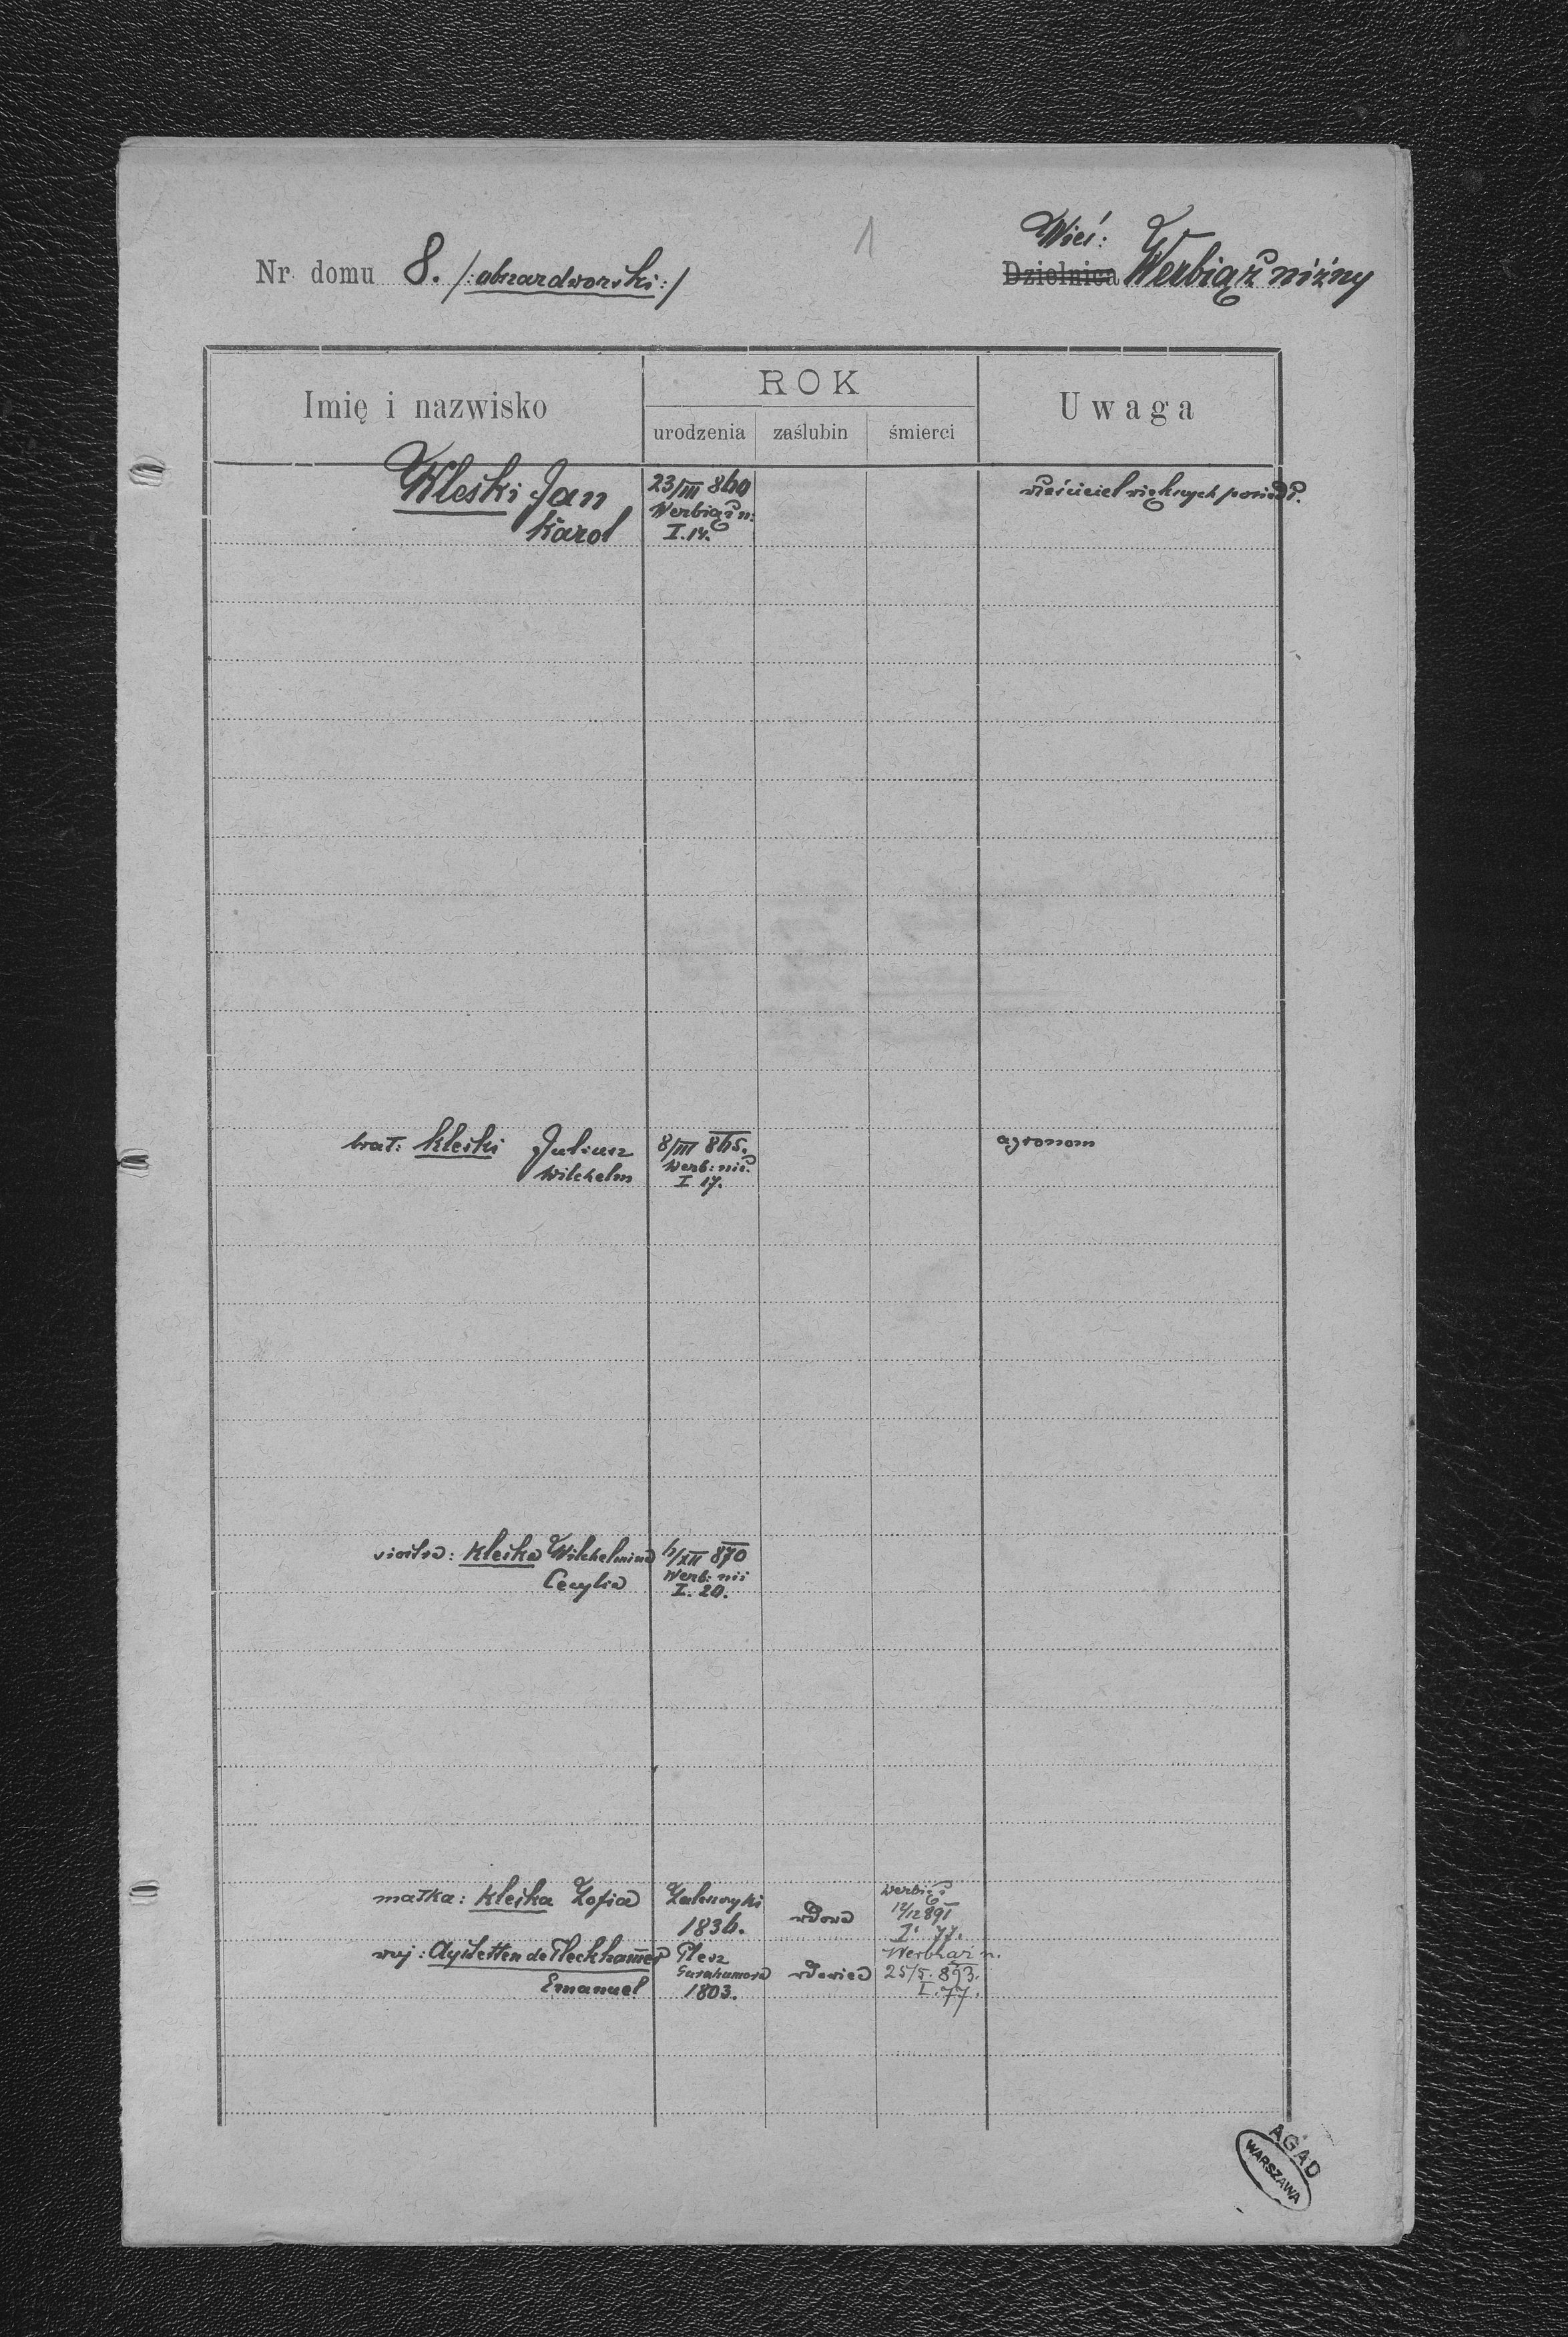 1
Wieś:
Nr domu 8. /:obszar dworski:/
Dzielnica Werbiąż niżny
Imię i nazwisko
ROK
urodzenia zaślubin śmierci
Uwaga
Kleski Jan 23/III 860 właściciel większych posiadł.
Karol Werbiąż n:
I. 14.
brat: Kleski Juliusz 8/III 865. agronom
Wilhelm Werb: niż.
I 17.
siostra: Kleska Wilhelmina 6/XII 870
Cecylia Werb: niż
I. 20.
matka: Kleska Zofia 1836. wdowa Werbiąż
12/12 891
I. 77.
wuj: de Emanuel 1803. wdowiec
25/5. 893.
I. 77.
AGAD
WARSZAWA